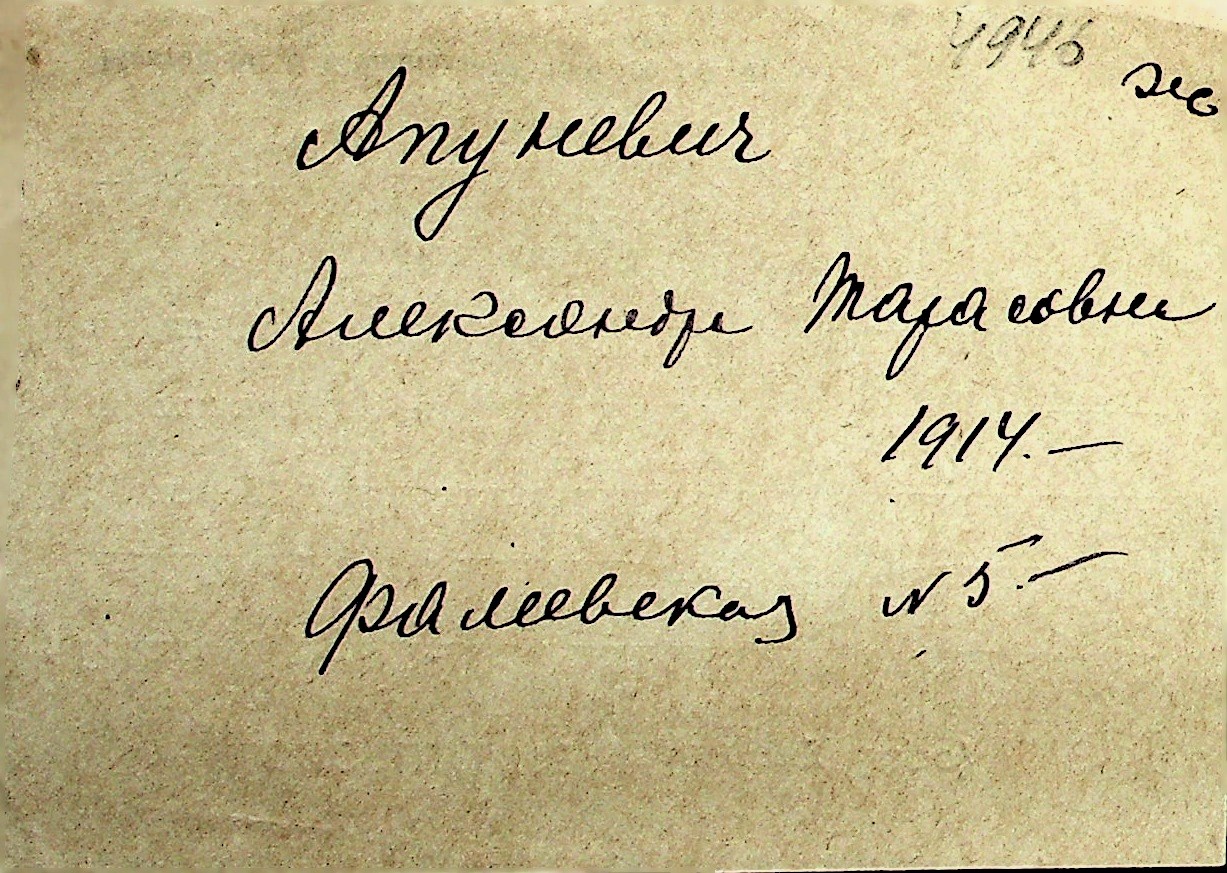 1946 ж
Апуневич
Александр Тарасовн
1914. –
Фалеевская N 5. –